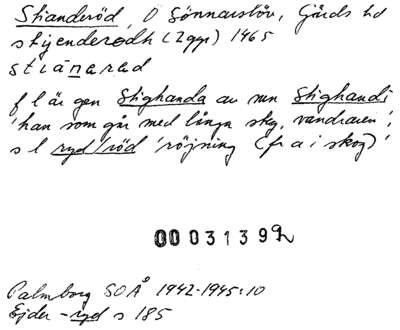 Stianderöd, Ö Sönnarslöv, Gärds hd
stijenderodh (2 ggr) 1465
stiänarad
f l är gen Stighanda av mn Stighandi
'han som går med långa steg, vandraren';
s l ryd/röd 'röjning (fr a i skog)'
00 031399
Palmborg SOÅ 1942-1945:10
Ejder -ryd s 185